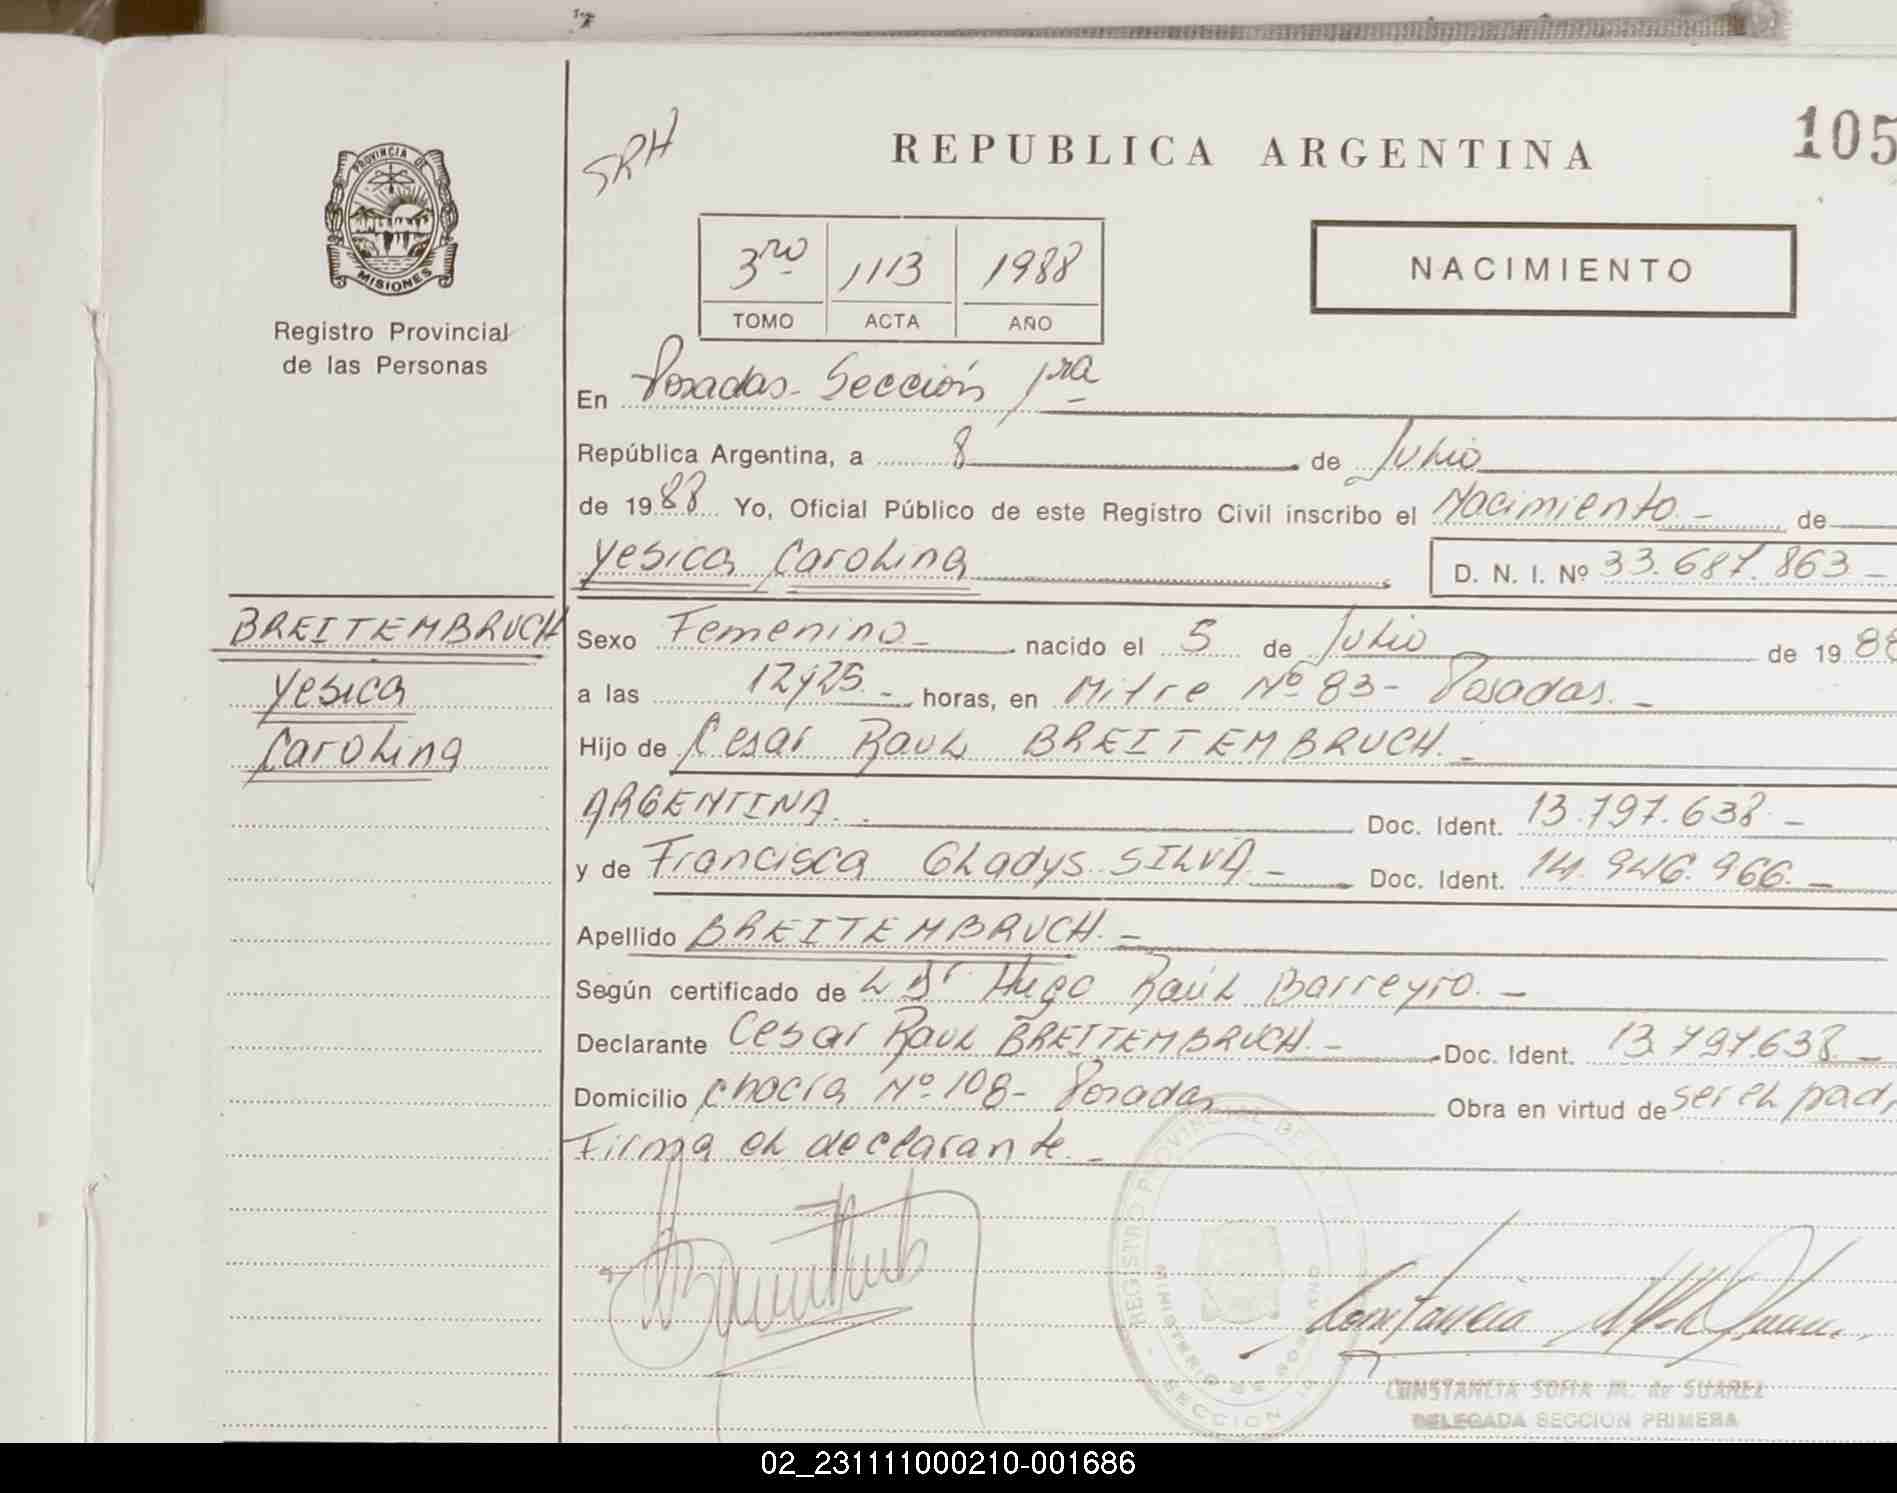 PROVINCIA DE
MISIONES
Registro Provincial
de las Personas
SRH
REPUBLICA ARGENTINA
105
3ro 1113 1988
TOMO ACTA AÑO
NACIMIENTO
En Posadas - Sección 1ra
República Argentina, a 8 de Julio
de 1988 Yo, Oficial Público de este Registro Civil inscribo el Nacimiento - de
Yesica Carolina D. N. I. Nº 33.687.863 -
BREITEMBRUCH
Yesica
Carolina
Sexo Femenino - nacido el 5 de Julio de 1988
a las 12y25 - horas, en Mitre Nº 83 - Posadas. -
Hijo de Cesar Raul BREITEMBRUCH. -
ARGENTINA. Doc. Ident. 13.797.638 -
y de Francisca Gladys SILVA - Doc. Ident. 14.946.966. -
Apellido BREITEMBRUCH. -
Según certificado de L Dr Hugo Raúl Barreyro. -
Declarante Cesar Raul BREITEMBRUCH. - Doc. Ident. 13.797.638 -
Domicilio Chacra Nº 108 - Posadas Obra en virtud de ser el padr
Firma el declarante. -
REGISTRO PROVINCIAL DE
MINISTERIO DE GOBIERNO
SECCION
CONSTANCIA SOFIA M. de SUAREZ
DELEGADA SECCION PRIMERA
02_231111000210-001686